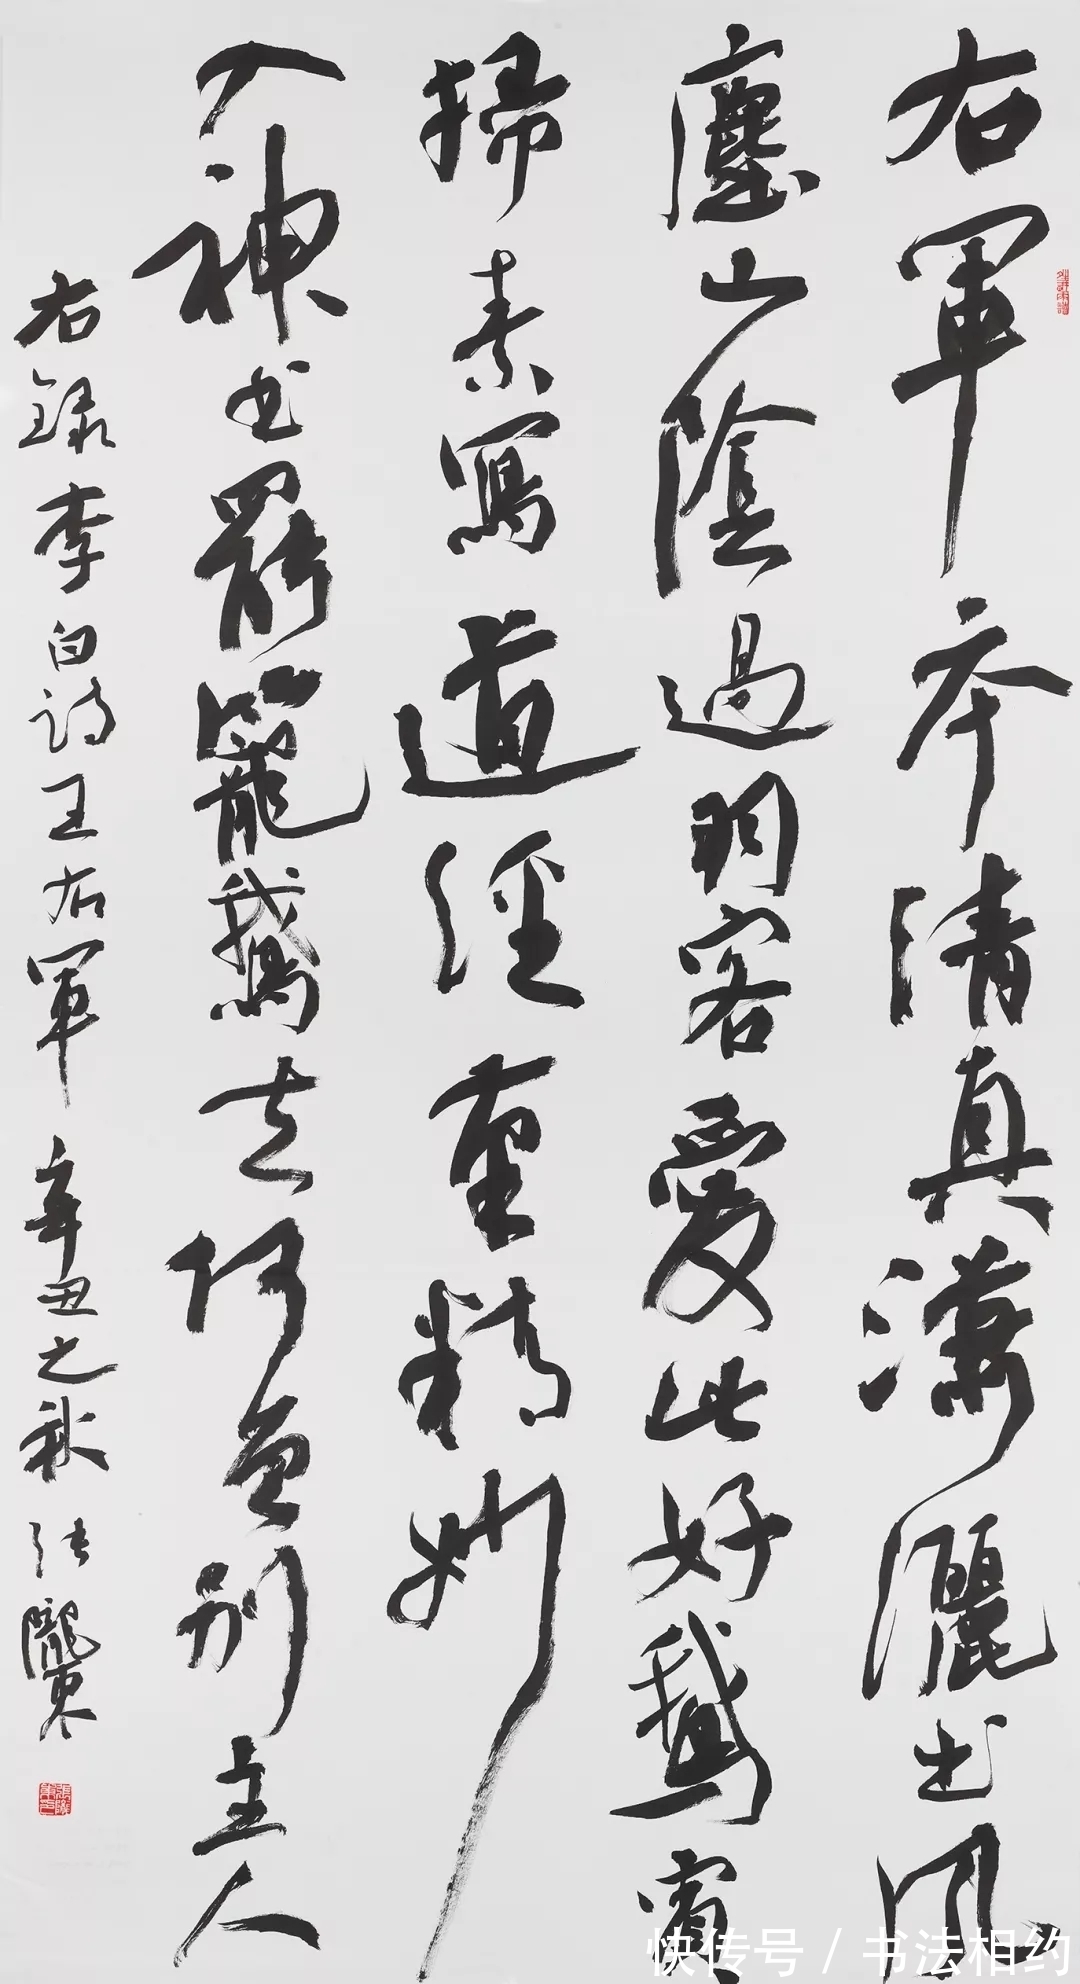 右軍本清真瀟灑出風
塵山陰過羽客愛此好鵝賓
掃素寫道經重精妙
入神書罷籠鵝去何曾別主人
右録李白詩王右軍 辛丑之秋 张隴東
快传号 / 书法相约